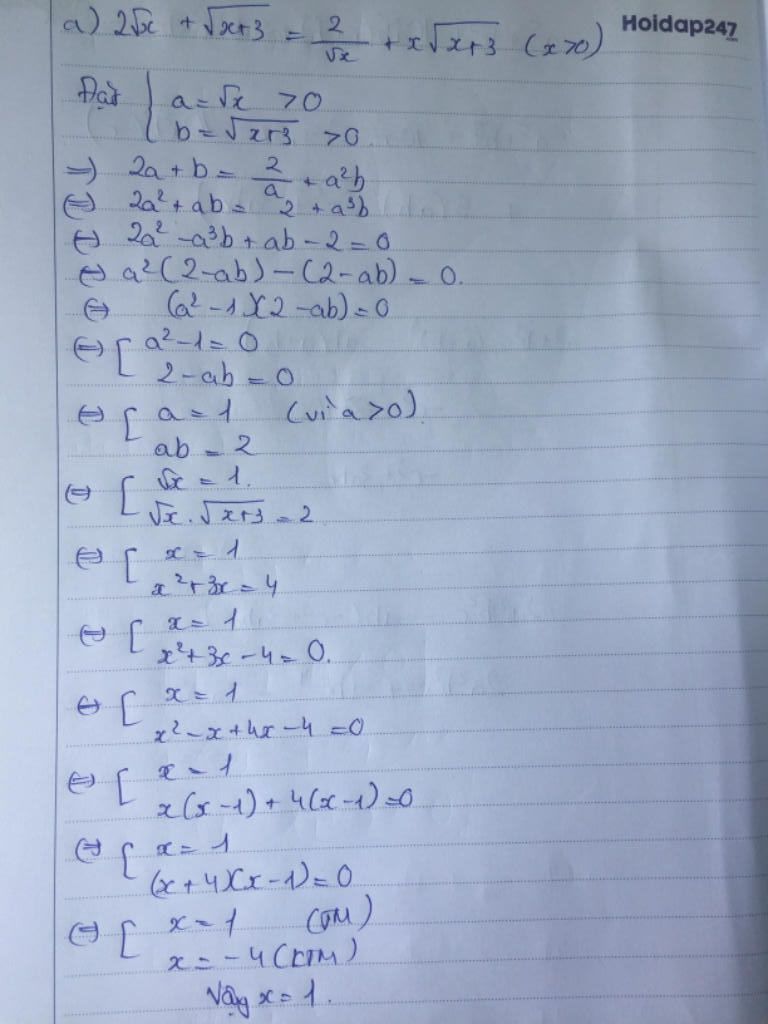 Hoidap247
a) 2√x + √(x+3) = 2/√x + x√(x+3) (x>0)
Đặt { a = √x > 0
b = √(x+3) > 0.
=) 2a + b = 2/a + a²b
(=) 2a² + ab = 2 + a³b
(=) 2a² - a³b + ab - 2 = 0
(=) a²(2-ab) - (2-ab) = 0.
(=) (a²-1)(2-ab) = 0
(=) [ a² - 1 = 0
2 - ab = 0
(=) [ a = 1 (vì a>0).
ab = 2
(=) [ √x = 1.
√x . √(x+3) = 2
(=) [ x = 1
x² + 3x = 4
(=) [ x = 1
x² + 3x - 4 = 0.
(=) [ x = 1
x² - x + 4x - 4 = 0
(=) [ x = 1
x(x-1) + 4(x-1) = 0
(=) [ x = 1
(x+4)(x-1) = 0
(=) [ x = 1 (TM)
x = -4 (KTM)
Vậy x = 1.